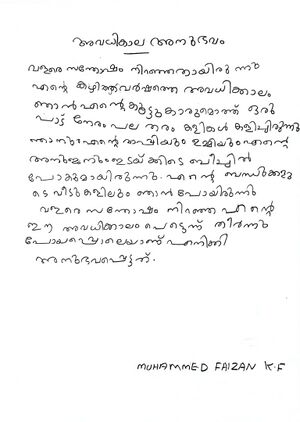 അവധികാല അനുഭവം
വളരെ സന്തോഷം നിറഞ്ഞതായിരുന്നു
എന്റെ കഴിഞ്ഞവർഷത്തെ അവധിക്കാലം
ഞാൻ എന്റെ കൂട്ടുകാരുമൊത്ത് ഒരു
പാട് നേരം പല തരം കളികൾ കളിച്ചിരുന്നു
ഞാനും എന്റെ താത്തിയും ഉമ്മിയും എന്റെ
അനുജനും ഇടയ്ക്കിടെ ബീച്ചിൽ
പോകുമായിരുന്നു. എന്റെ ബന്ധുക്കളു
ടെ വീടുകളിലും ഞാൻ പോയിരുന്നു
വളരെ സന്തോഷം നിറഞ്ഞ എന്റെ
ഈ അവധിക്കാലം പെട്ടെന്ന് തീർന്നു
പോയപ്പോലെയാണ് എനിക്ക്
അനുഭവപ്പെട്ടത്.
MUHAMMED FAIZAN K.F